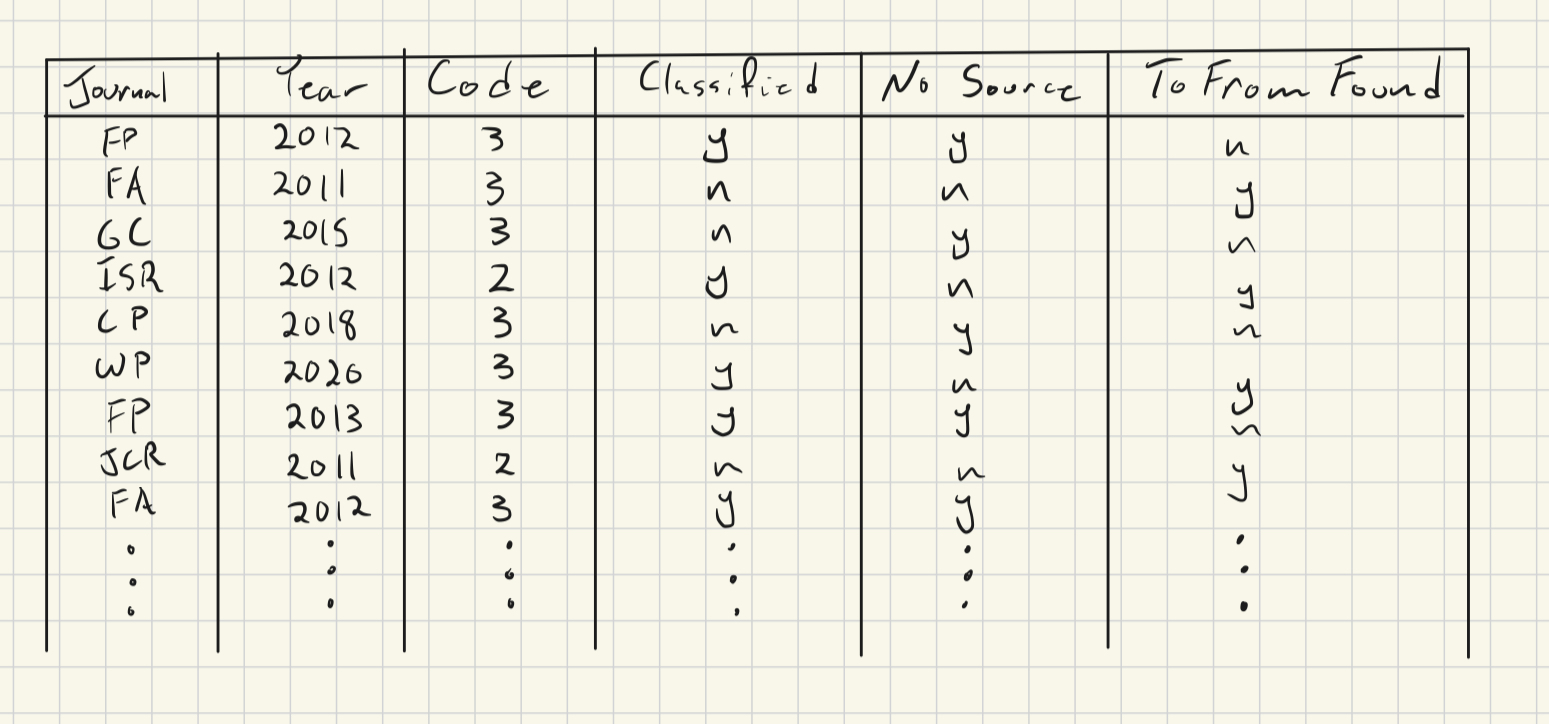 Journal Year Code Classified No Source To From Found
FP 2012 3 y y n
FA 2011 3 n n y
GC 2015 3 n y n
ISR 2012 2 y n y
CP 2018 3 n y n
WP 2020 3 y n y
FP 2013 3 y y n
JCR 2011 2 n n y
FA 2012 3 y y